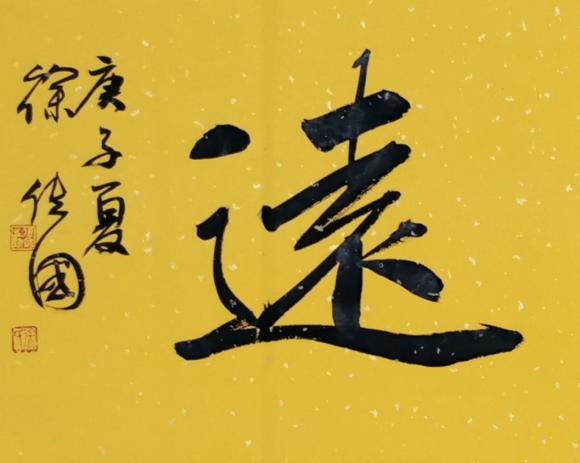 遠
庚子夏
徐佳國